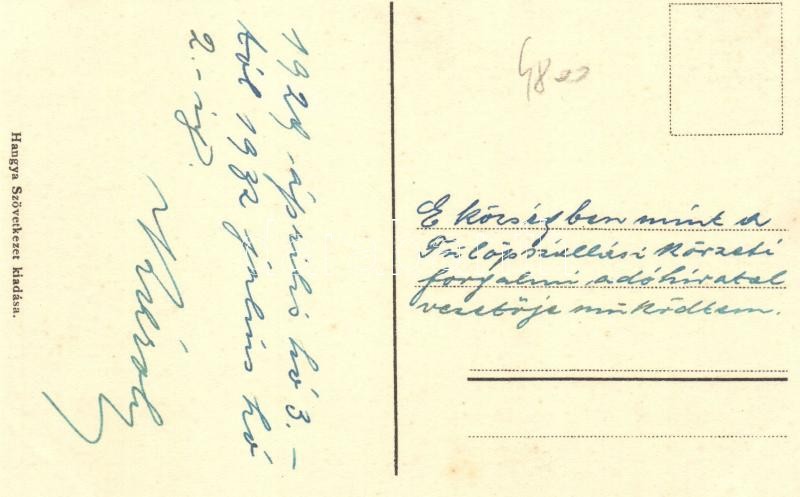 1929 április hó 3.-
tól 1932 július hó
2.-ig.
Hangya Szövetkezet kiadása.
4800
E községben mint a
Fülöpszállási körzeti
forgalmi adóhivatal
vezetője működtem.